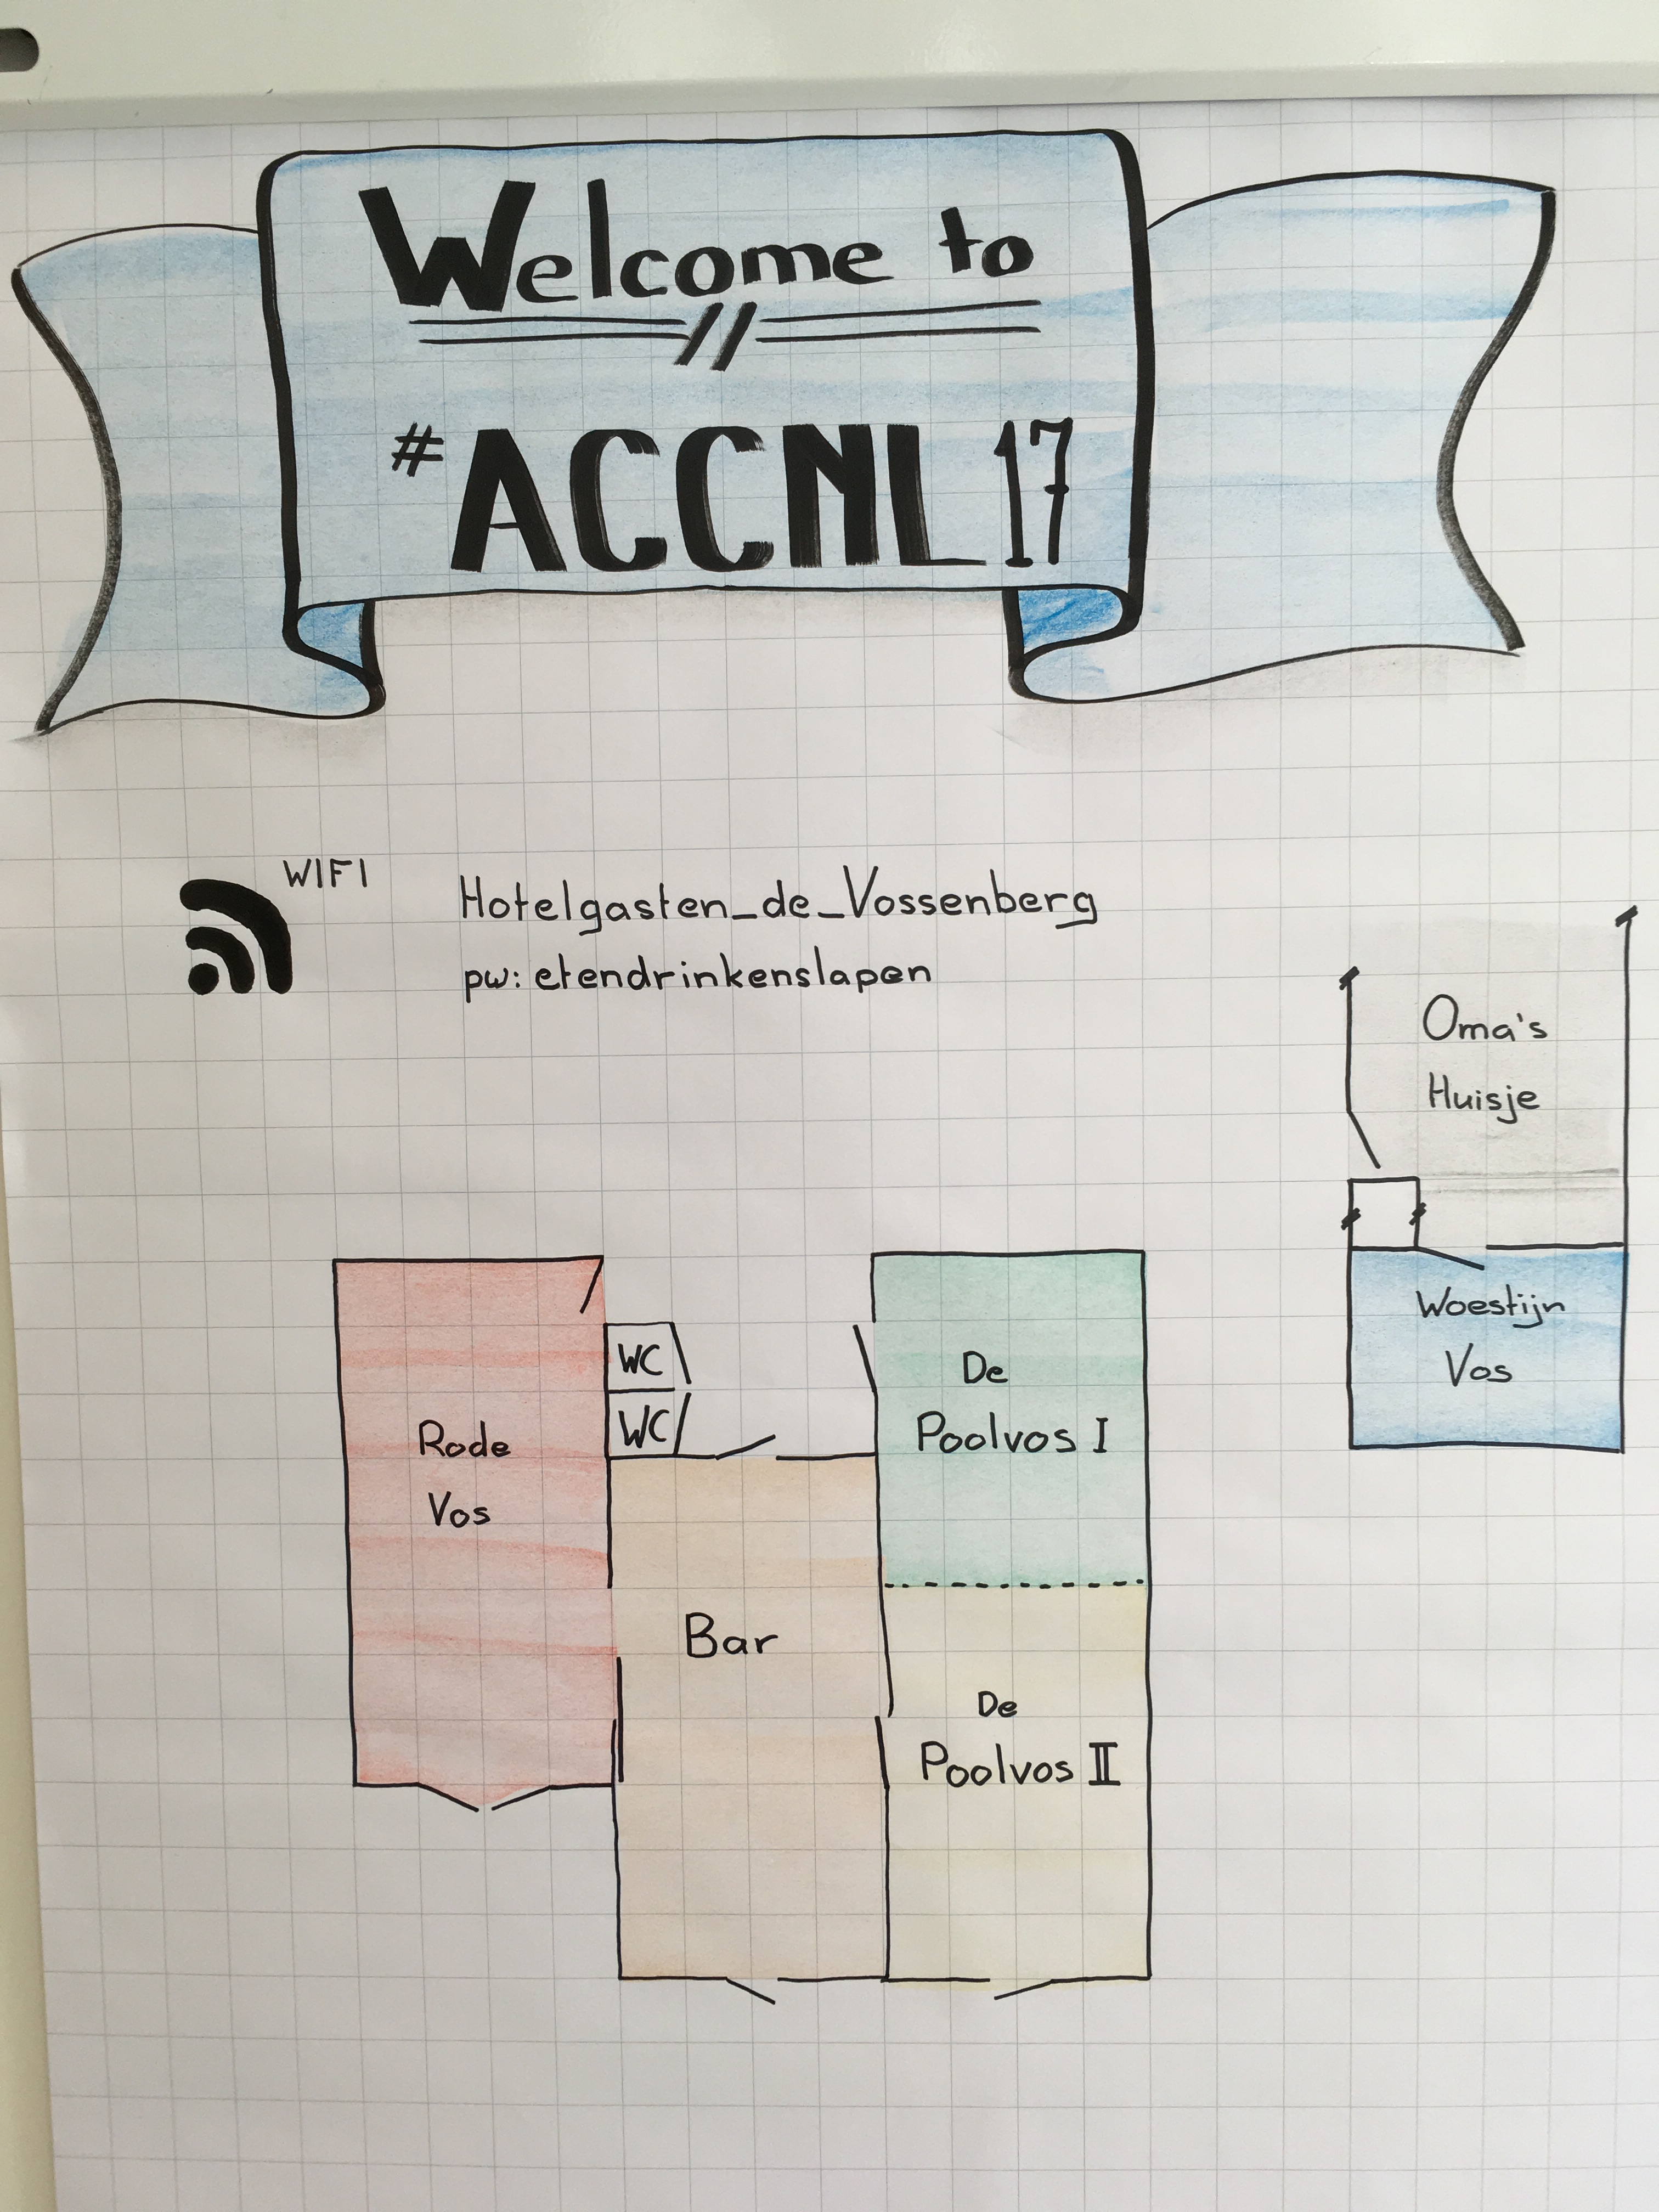 Welcome to
#ACCNL17
WIFI
Hotelgasten_de_Vossenberg
pw: etendrinkenslapen
Oma's
Huisje
Woestijn
Vos
WC
WC
Rode
Vos
Bar
De
Poolvos I
De
Poolvos II